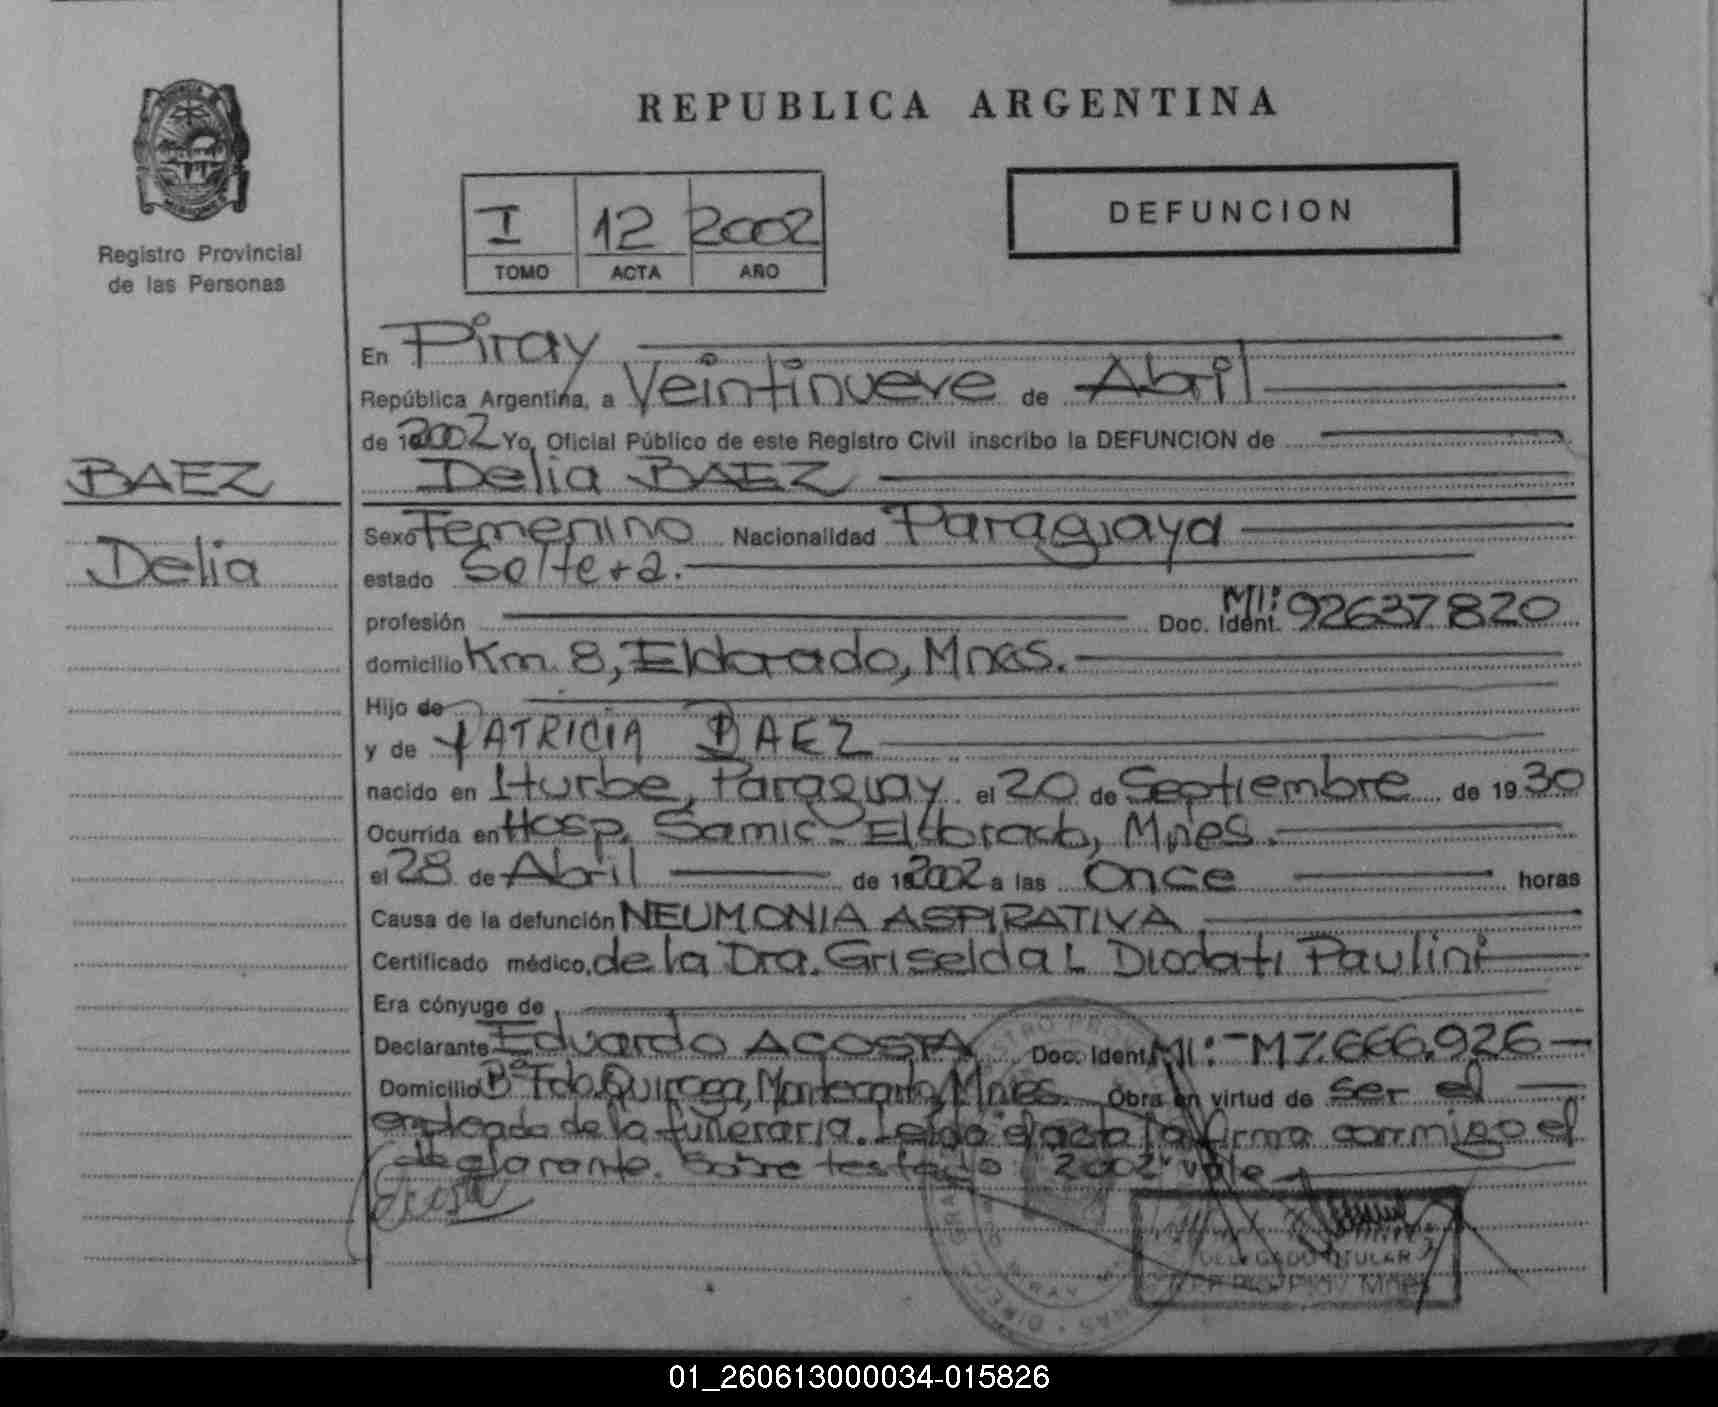 REPUBLICA ARGENTINA
Registro Provincial
de las Personas
I 12 2002
TOMO ACTA AÑO
DEFUNCION
En Piray
República Argentina, a Veintinueve de Abril
de 2002 Yo, Oficial Público de este Registro Civil inscribo la DEFUNCION de
BAEZ
Delia BAEZ
Delia
Sexo Femenino Nacionalidad Paraguaya
estado Soltera.
profesión Doc. Ident. MI: 92637820
domicilio Km. 8, Eldorado, Mnes.
Hijo de
y de PATRICIA BAEZ
nacido en Iturbe, Paraguay el 20 de Septiembre de 1930
Ocurrida en Hosp. Samic- Eldorado, Mnes.
el 28 de Abril de 2002 a las Once horas
Causa de la defunción NEUMONIA ASPIRATIVA
Certificado médico de la Dra. Griselda L Diodati Paulini
Era cónyuge de
Declarante Eduardo ACOSTA Doc. Ident. MI: M 7.666.926
Domicilio Bº Fdo. Quiroga, Montecarlo, Mnes. Obra en virtud de ser el
empleado de la funeraria. Leído el acta la firma conmigo el
declarante. Sobre testado "2002" vale
DELEGADO TITULAR
01_260613000034-015826